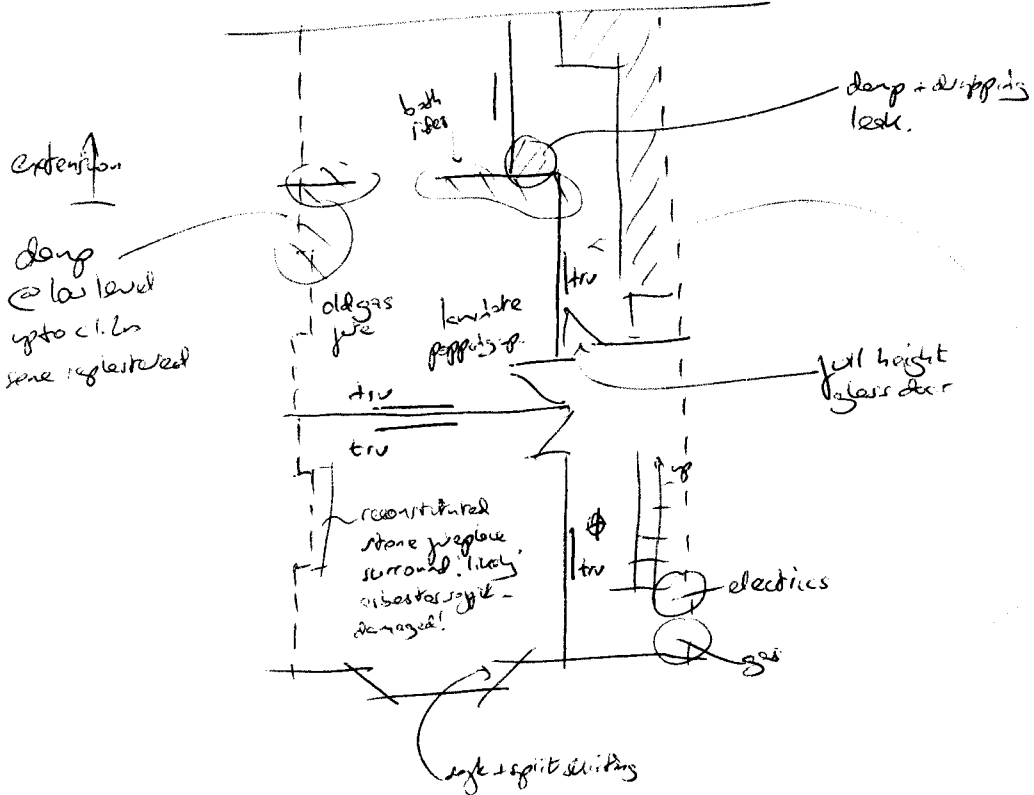 damp + dripping
leak.
both
sides
extension
damp
@ low level
up to c1.2m
some replastered
old gas
fire
laminate
popping up.
trv
full height
glass door
trv
trv
up
reconstituted
stone fireplace
surround. likely
asbestos soffit -
damaged!
trv
electrics
gas
+ split skirting